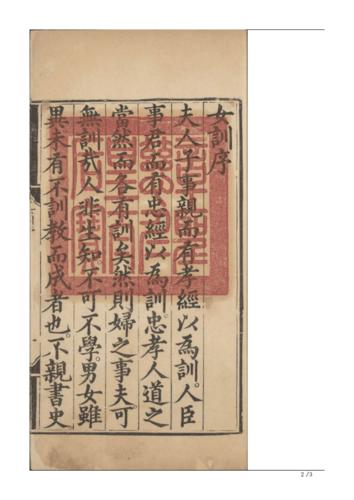 女訓序
夫人子事親而有孝經以為訓。人臣
事君而有忠經以為訓。忠孝人道之
當然而各有訓矣。然則婦之事夫可
無訓哉。人非生知。不可不學。男女雖
異未有不訓教而成者也。不親書史
2 / 3